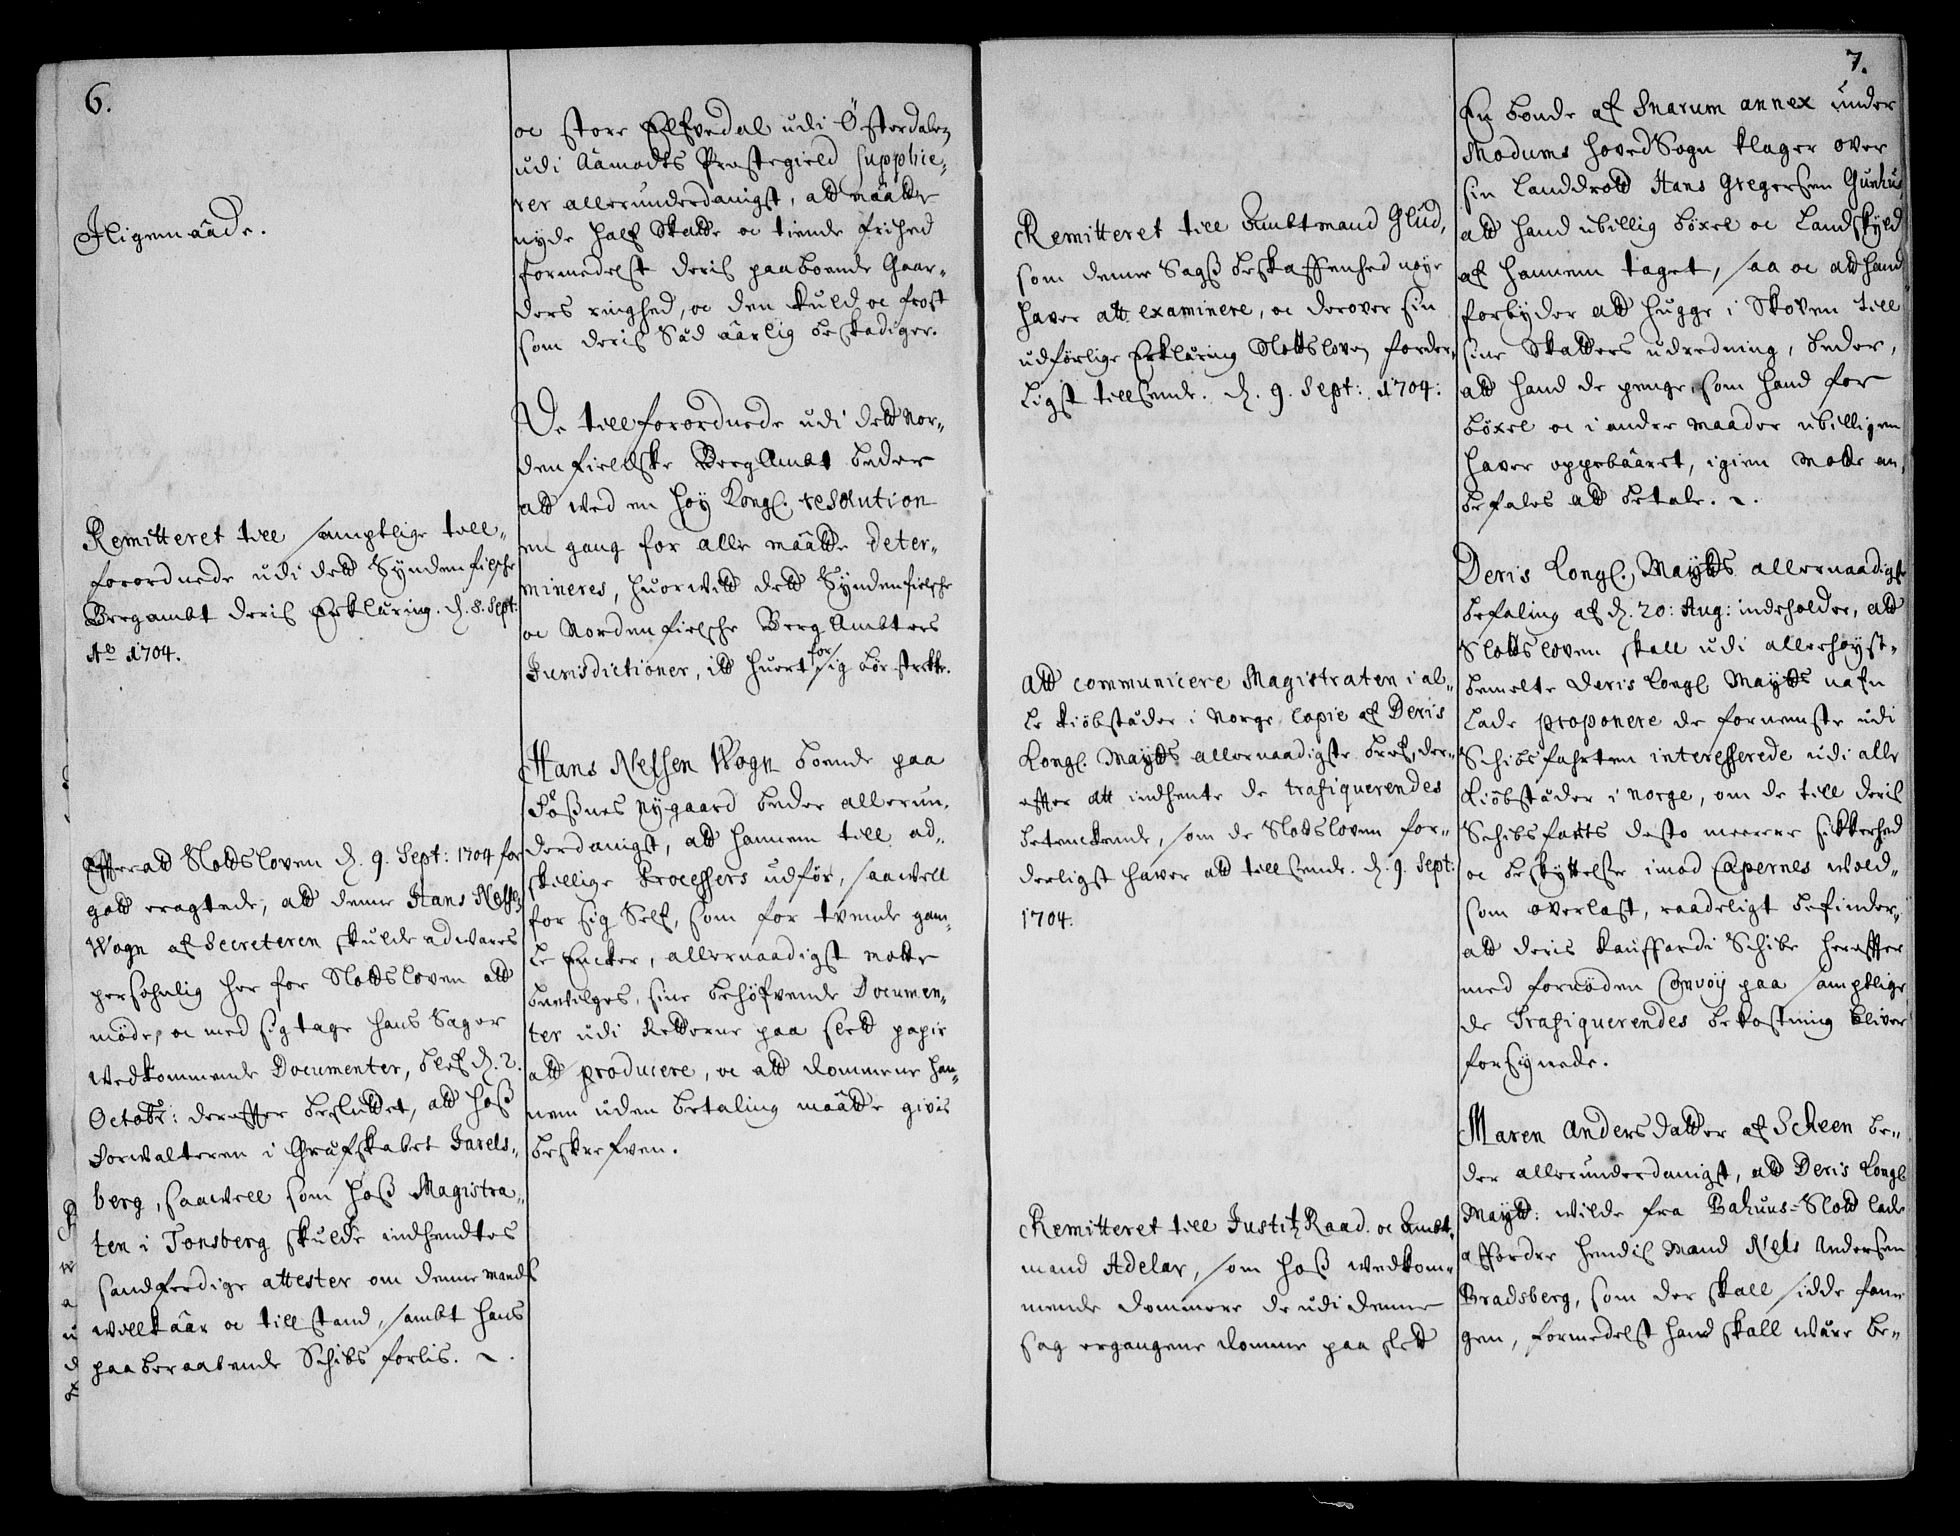 6.
Iligemaade.
Remitteret till samptlige till„
forordnede udi dett Syndenfielsche
Bergambt deris Erkläring. d. 8. Sept:
Aº 1704.
Effter att Slottsloven d. 9. Sept: 1704 for
gott eragtede, att denne Hans Nelsen
Wogn af Secreteren skulde advares
persohnlig her for Slottsloven att
möde, oc med sig tage hans Sager
vedkommende Documenter, blef d. 2.
Octobr: dereffter besluttet, att hoß
forwalteren i Grefskabet Jarels„
berg, saawell som hoß Magistra„
ten i Tonsberg skulde indhendtes
sandferdige attester om denne Mands
willkaar oc tillstand, sambt hans
paaberaabende Schibs forlis.
oc store Elfvedal udi Österdalen
udi Aamodts Prestegield supplie„
rer allerunderdanigst, att maatte
nyde half Skatte oc tiende frihed
formedelst deris paaboende Gaar„
ders ringhed, oc den kuld oc frost
som deris Säd aarlig beskadiger.
De tillforordnede udi dett Nor„
denfieldske BergAmbt beder
att ved en høy Kongl. resolution
en gang for alle maatte deter„
mineres, huorvitt dett Syndenfielsche
oc Nordenfielsche Berg Ambters
Jurisdictioner, itt huert for sig bör strekke.
Hans Nelsen Wogn boende paa
Foßnes Nygaard beder allerun„
derdanigst, att hannem till ad„
skillige Processers udför, saawell
for sig Self, som for tvende gam„
le Encker, allernaadigst motte
bevilges, sine behöfvende Documen„
ter udi Retterne paa slett papir
att producere, oc att Dommene han„
nem uden betaling maatte givis
beskrefven.
Remitteret till Ambtmand Glud,
som denne Sagß beskaffenhed nøye
haver att examinere, oc derover sin
udförlige Erkläring Slottsloven forder„
ligst tillsende. d. 9. Sept: 1704:
Att communicere Magistraten i al„
le kiöbstäder i Norge Copie af Deris
Kongl. Maytts allernaadigste bref, der„
effter att indhente de trafiquerendes
betenckende, som de Slottsloven for„
derligst haver att tillsende. d. 9. Sept:
1704.
Remitteret till JustitzRaad oc Ambt„
mand Adeler, som hoß vedkom„
mende Dommere de udi denne
sag ergangene Domme paa slett
7.
En bonde af Snarum annex under
Modums hovedSogn klager over
sin Landdrott Hans Gregersen
att hand ubillig böxel oc Landskyld
af hannem taget, saa oc att hand
forbyder att hugge i Skoven till
sine Skatters udredning, beder,
att hand de penge, som hand for
böxel oc i ander maader ubilligen
haver oppebaaret, igien motte an„
befales att betale.
Deris Kongl. Maytts allernaadigste
befaling af d. 20: Aug: indeholder, att
Slottsloven skall udi allerhøyst„
bemelte Deris Kongl Maytts nafn
lade proponere de fornemste udi
Schibsfahrten interesserede udi alle
Kiöbstäder i Norge, om de till deris
Schibsfarts desto meerer sikkerhed
oc beskyttelse imod Capernes vold„
som overlast, raadeligt befinder,
att deris kauffardi Schibe hereffter
med fornöden Convoy paa samptlige
de Trafiquerendes bekostning bliver
forsynede.
Maren Anders datter af Scheen be„
der allerunderdanigst, att Deris Kongl
Maytt: vilde fra Bahuus=Slott lade
affordre hendis Mand Niels Andersen
Bradsberg, som der skall sidde fan„
gen, formedelst hand skall være be„